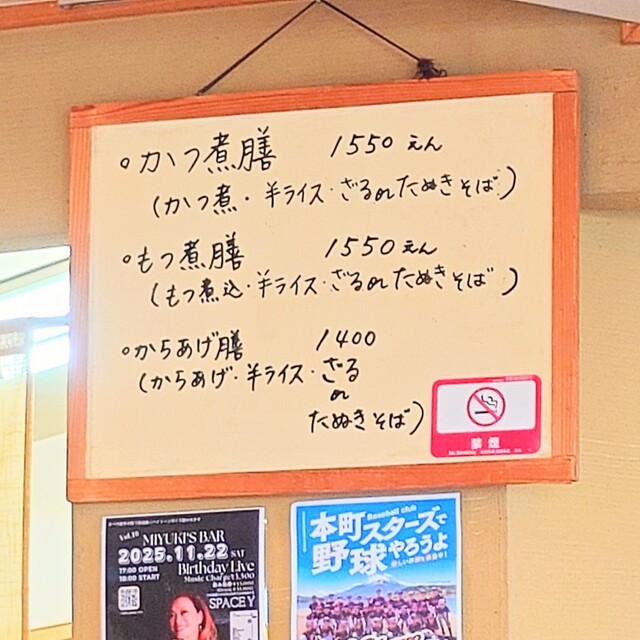 ○かつ煮膳 1550えん
(かつ煮・半ライス・ざるorたぬきそば)
○もつ煮膳 1550えん
(もつ煮込・半ライス・ざるorたぬきそば)
○からあげ膳 1400
(からあげ・半ライス・ざる
or
たぬきそば)
禁煙
No Smoking
Vol.10 MIYUKI'S BAR
2025.11.22 SAT
17:00 OPEN
18:00 START
Birthday Live
SPACE Y
Baseball club
本町スターズで
野球やろうよ